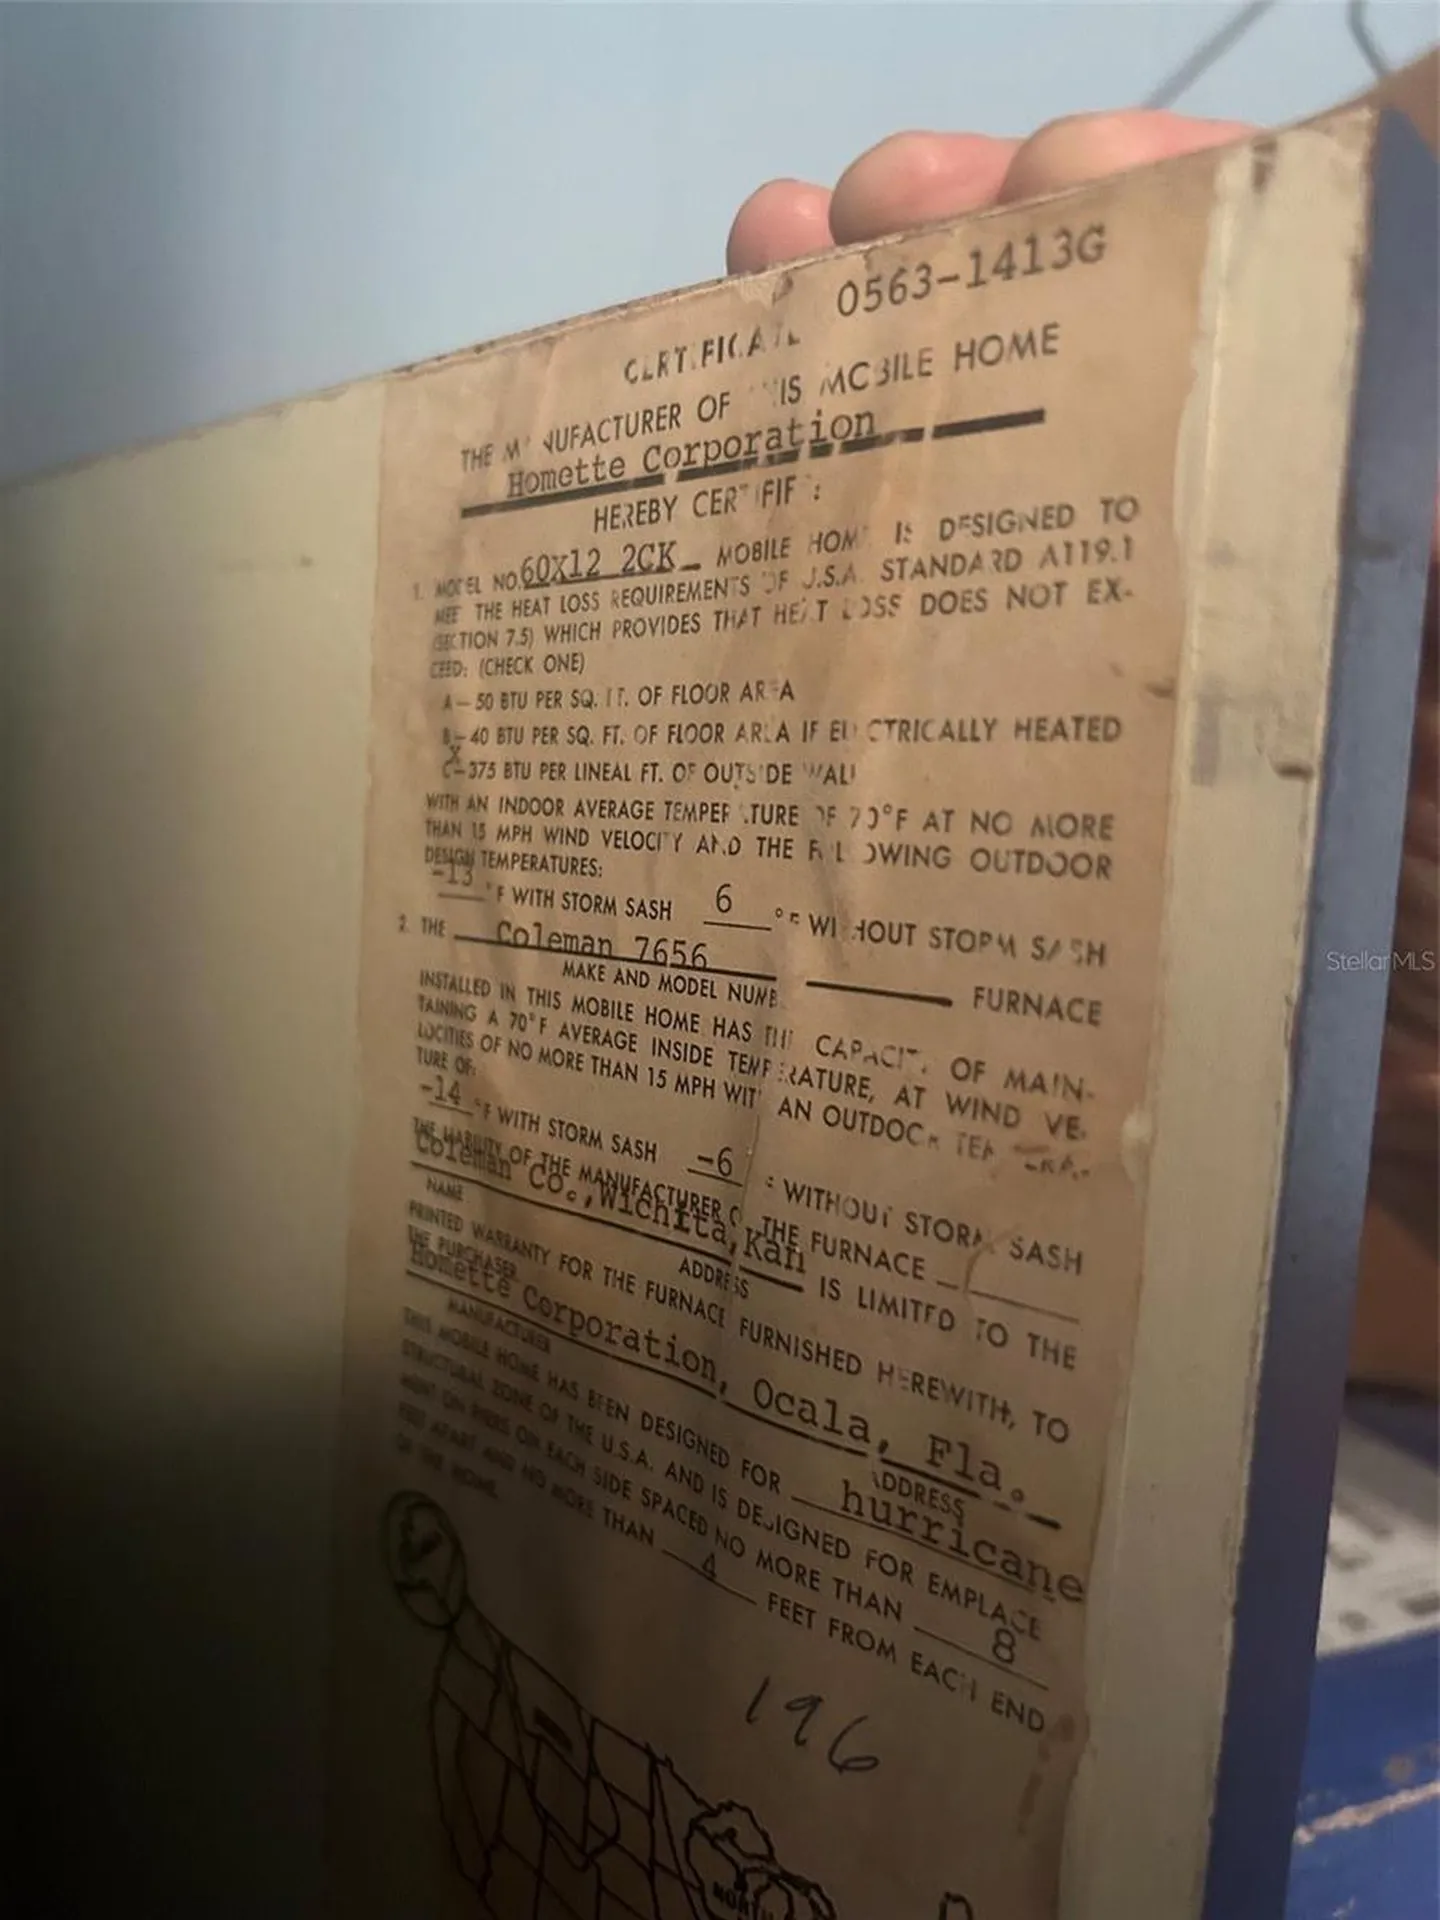 0563-1413G
CERTIFICATE
THE MANUFACTURER OF THIS MOBILE HOME
Homette Corporation
HEREBY CERTIFIES:
1. MODEL NO. 60X12 2CK MOBILE HOME IS DESIGNED TO
MEET THE HEAT LOSS REQUIREMENTS OF U.S.A. STANDARD A119.1
(SECTION 7.5) WHICH PROVIDES THAT HEAT LOSS DOES NOT EX-
CEED: (CHECK ONE)
A – 50 BTU PER SQ. FT. OF FLOOR AREA
B – 40 BTU PER SQ. FT. OF FLOOR AREA IF ELECTRICALLY HEATED
X
C – 375 BTU PER LINEAL FT. OF OUTSIDE WALL
WITH AN INDOOR AVERAGE TEMPERATURE OF 70°F AT NO MORE
THAN 15 MPH WIND VELOCITY AND THE FOLLOWING OUTDOOR
DESIGN TEMPERATURES:
-13 °F WITH STORM SASH 6 °F WITHOUT STORM SASH
2. THE Coleman 7656 FURNACE
MAKE AND MODEL NUMB
INSTALLED IN THIS MOBILE HOME HAS THE CAPACITY OF MAIN-
TAINING A 70°F AVERAGE INSIDE TEMPERATURE, AT WIND VE-
LOCITIES OF NO MORE THAN 15 MPH WITH AN OUTDOOR TEMPERA-
TURE OF:
-14 °F WITH STORM SASH -6 °F WITHOUT STORM SASH
THE LIABILITY OF THE MANUFACTURER OF THE FURNACE
Coleman Co., Wichita, Kan IS LIMITED TO THE
NAME ADDRESS
PRINTED WARRANTY FOR THE FURNACE FURNISHED HEREWITH, TO
THE PURCHASER
Homette Corporation, Ocala, Fla.
MANUFACTURER ADDRESS
THIS MOBILE HOME HAS BEEN DESIGNED FOR hurricane
STRUCTURAL ZONE OF THE U.S.A. AND IS DESIGNED FOR EMPLACE
MENT ON PIERS ON EACH SIDE SPACED NO MORE THAN 8
FEET APART AND NO MORE THAN 4 FEET FROM EACH END
OF THE HOME.
196
NORTH
StellarMLS